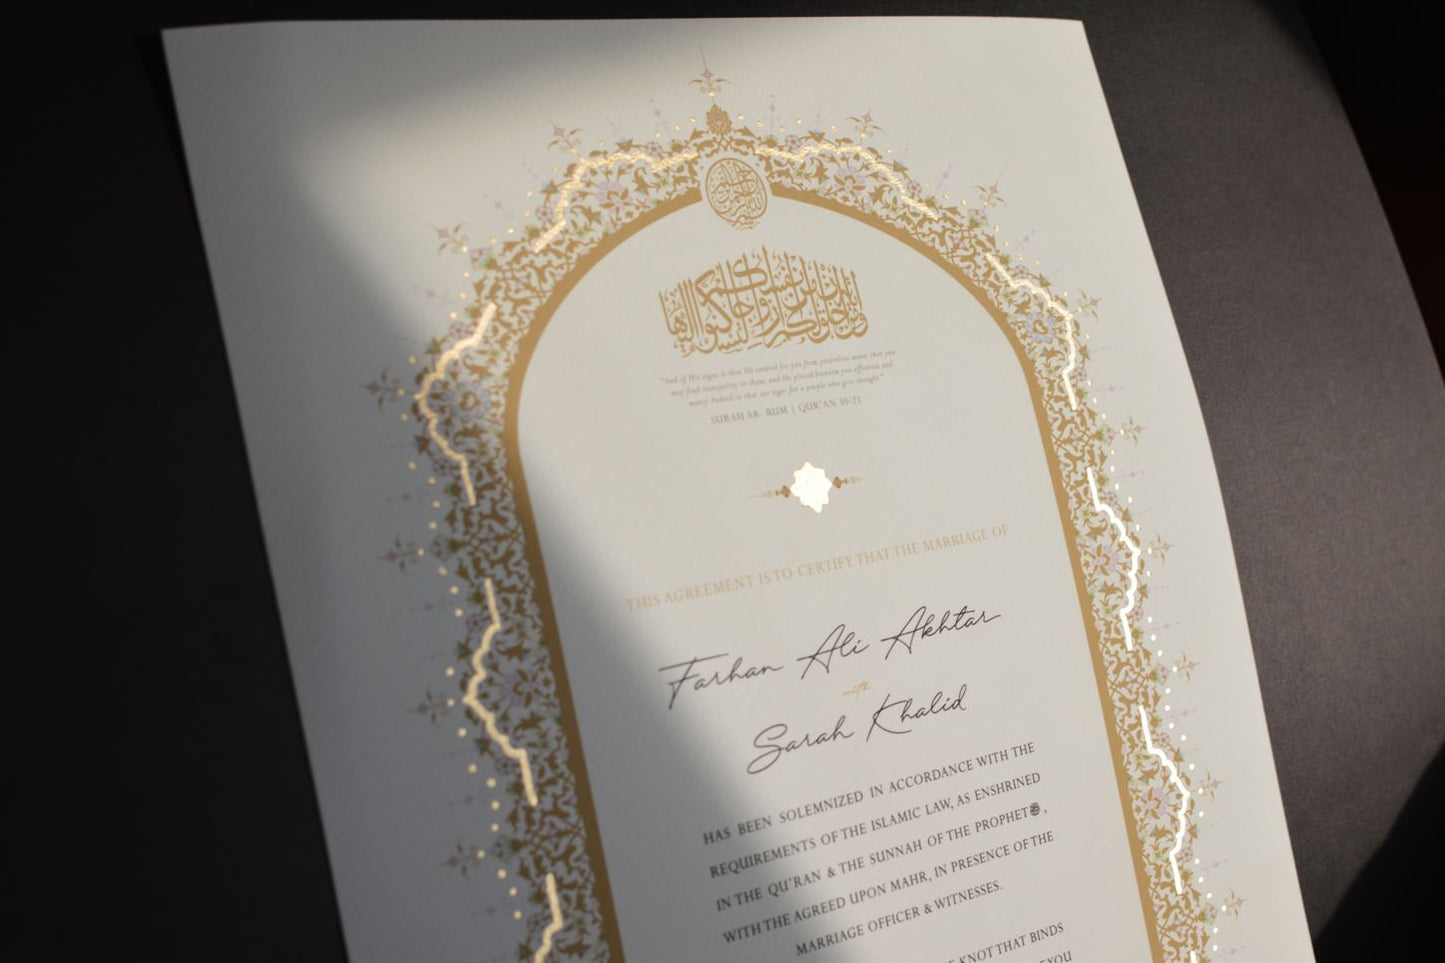 بسم الله الرحمن الرحيم
ومن آياته أن خلق لكم من أنفسكم أزواجا لتسكنوا إليها
"And of His signs is that He created for you from yourselves mates that you
may find tranquility in them; and He placed between you affection and
mercy. Indeed in that are signs for a people who give thought."
SURAH AR- RUM | QUR'AN 30:21
THIS AGREEMENT IS TO CERTIFY THAT THE MARRIAGE OF
Farhan Ali Akhtar
Sarah Khalid
HAS BEEN SOLEMNIZED IN ACCORDANCE WITH THE
REQUIREMENTS OF THE ISLAMIC LAW, AS ENSHRINED
IN THE QU'RAN & THE SUNNAH OF THE PROPHET ﷺ ,
WITH THE AGREED UPON MAHR, IN PRESENCE OF THE
MARRIAGE OFFICER & WITNESSES.
KNOT THAT BINDS
YOU